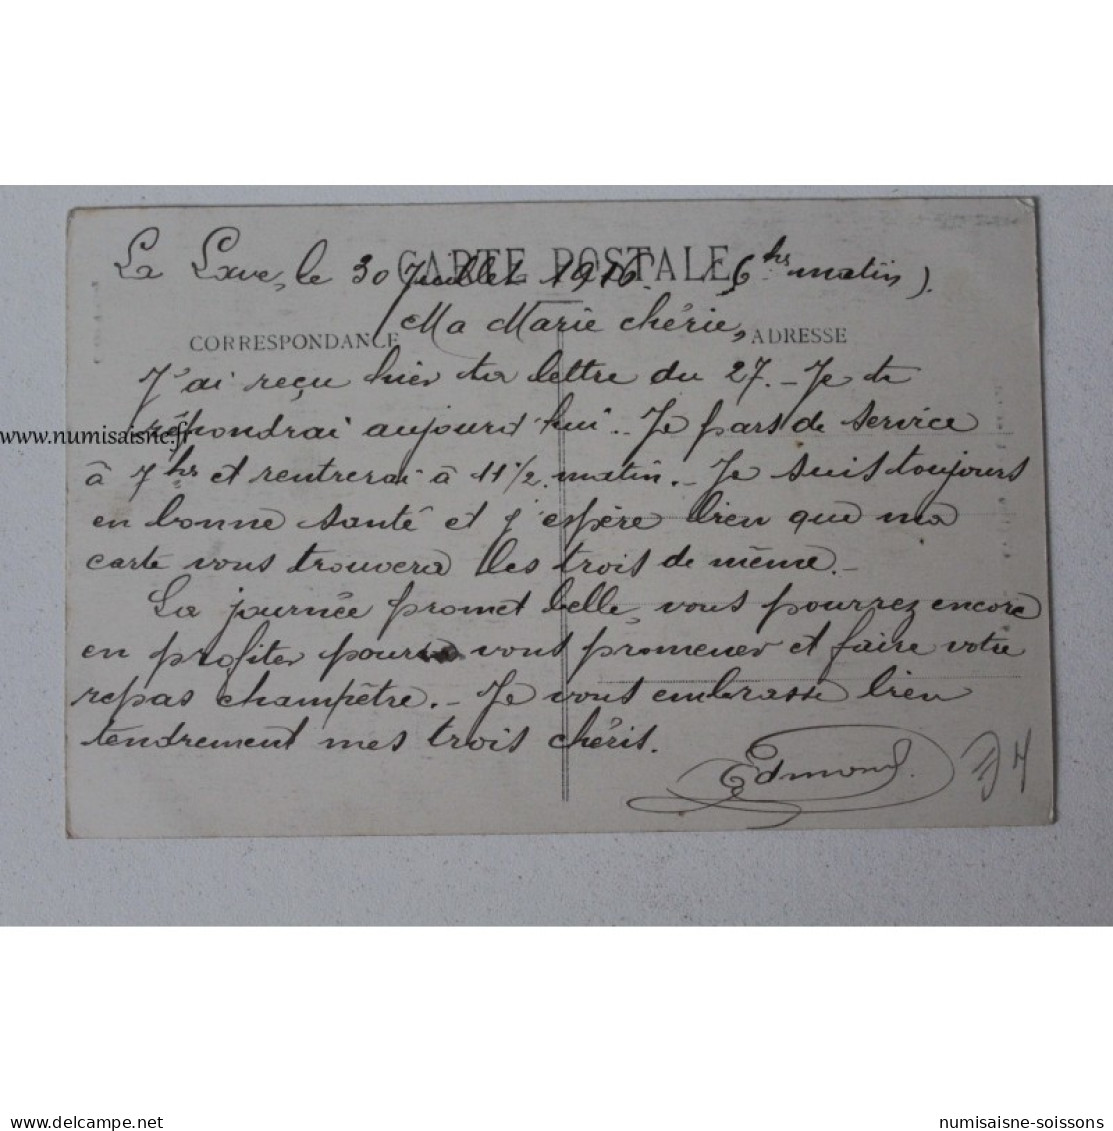 La Lave, le 30 Juillet 1916. (6 hrs matin).
CARTE POSTALE
Ma Marie chérie,
CORRESPONDANCE
ADRESSE
J'ai reçu hier ta lettre du 27. - Je te
répondrai aujourd'hui. - Je pars de service
à 7 hrs et rentrerai à 11 1/2 matin. - Je suis toujours
en bonne santé et j'espère bien que ma
carte vous trouvera les trois de même. -
La journée promet belle, vous pourrez encore
en profiter pour vous promener et faire votre
repas champêtre. - Je vous embrasse bien
tendrement mes trois chéris.
Edmond.
www.numisaisne.fr
delcampe.net
numisaisne-soissons